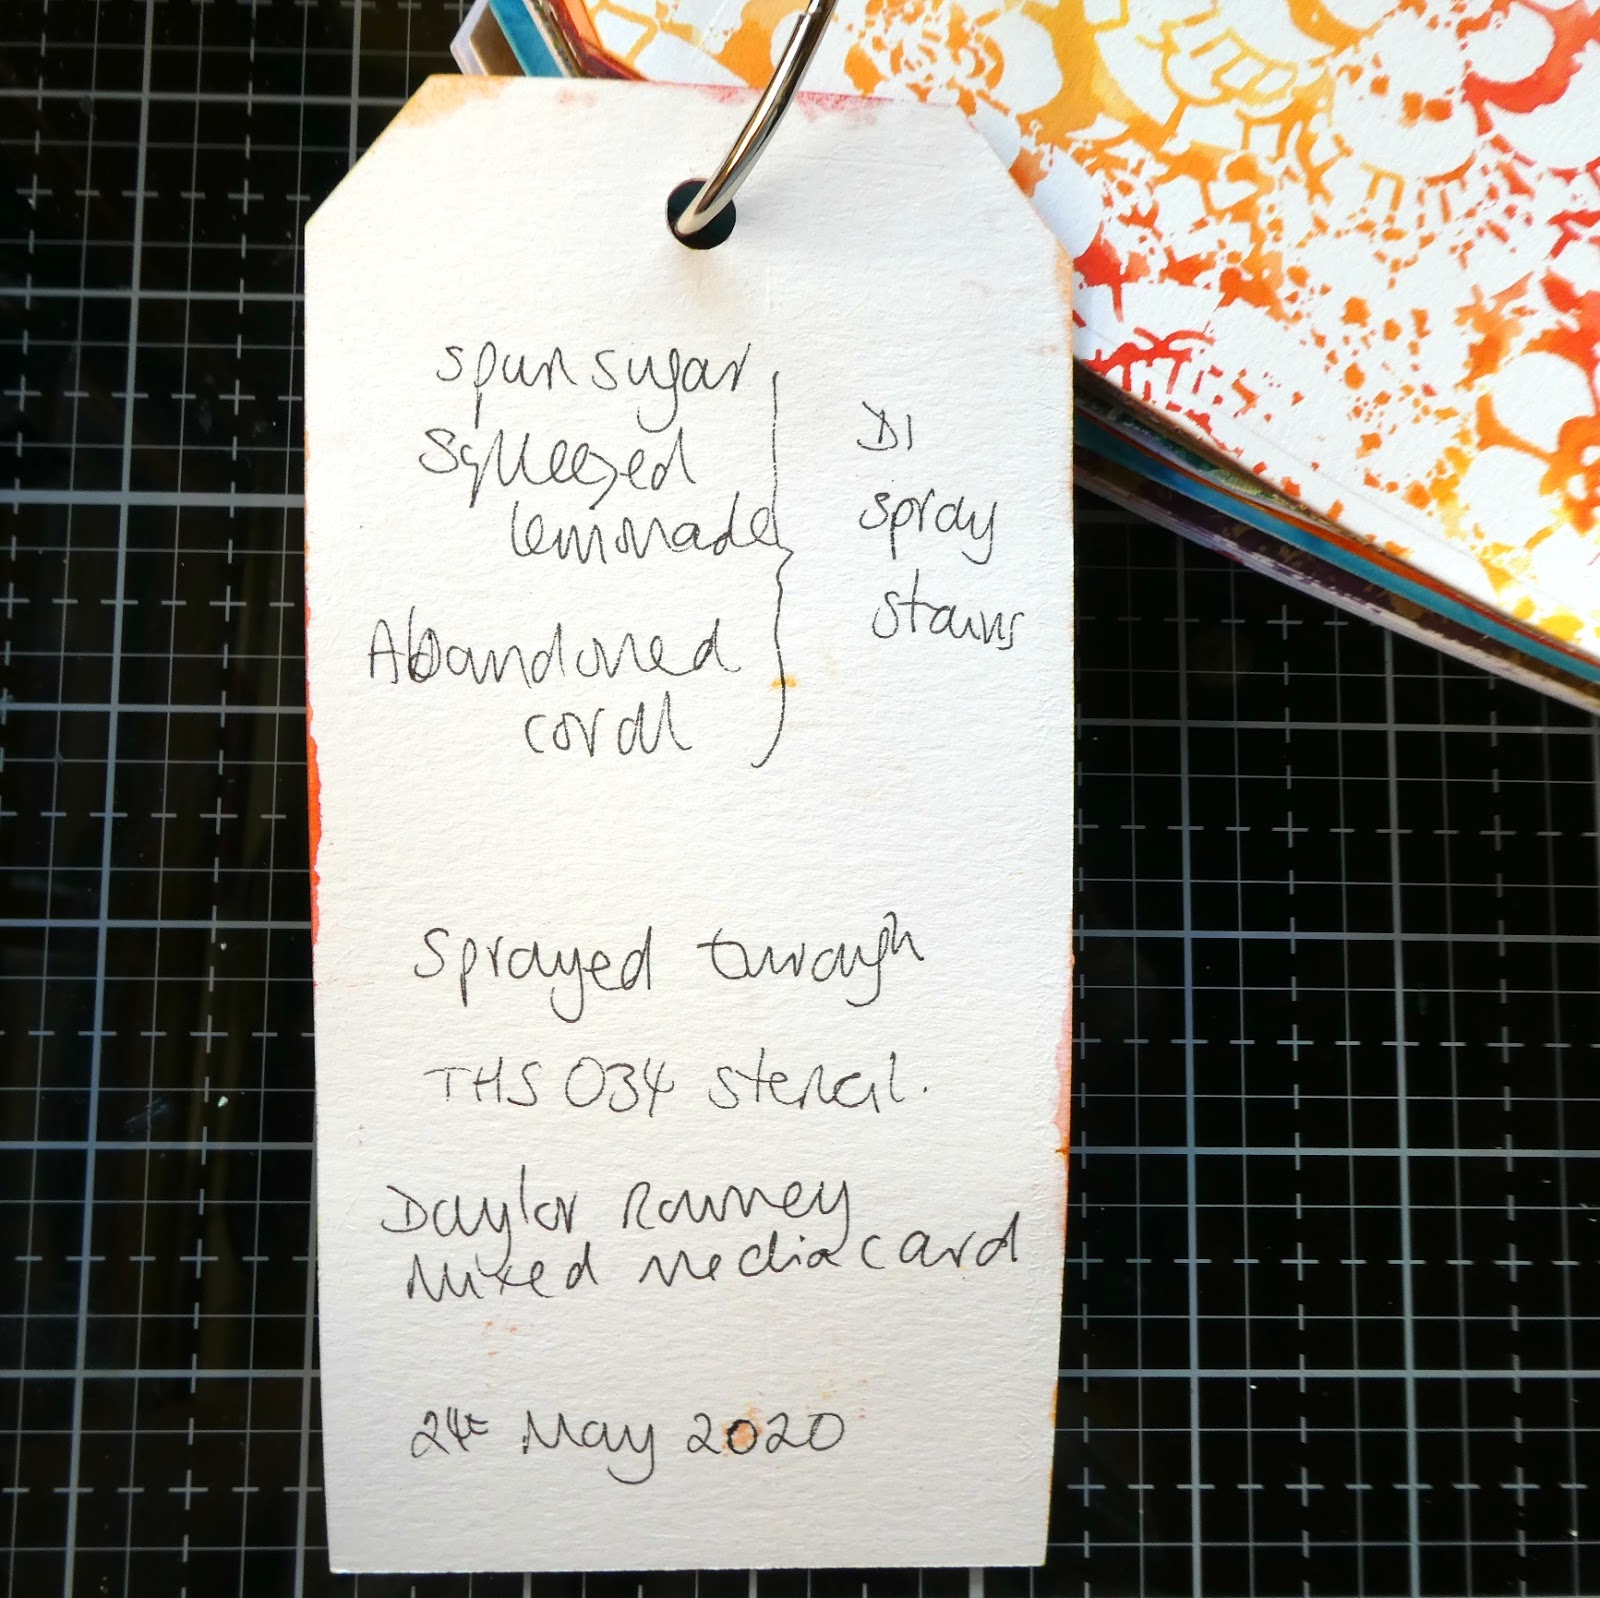 spun sugar
Squeezed
lemonade
Abandoned
corál
DI
spray
stains
Sprayed through
THS 034 stencil.
Daylor Rowney
Mixed Media card
24th May 2020